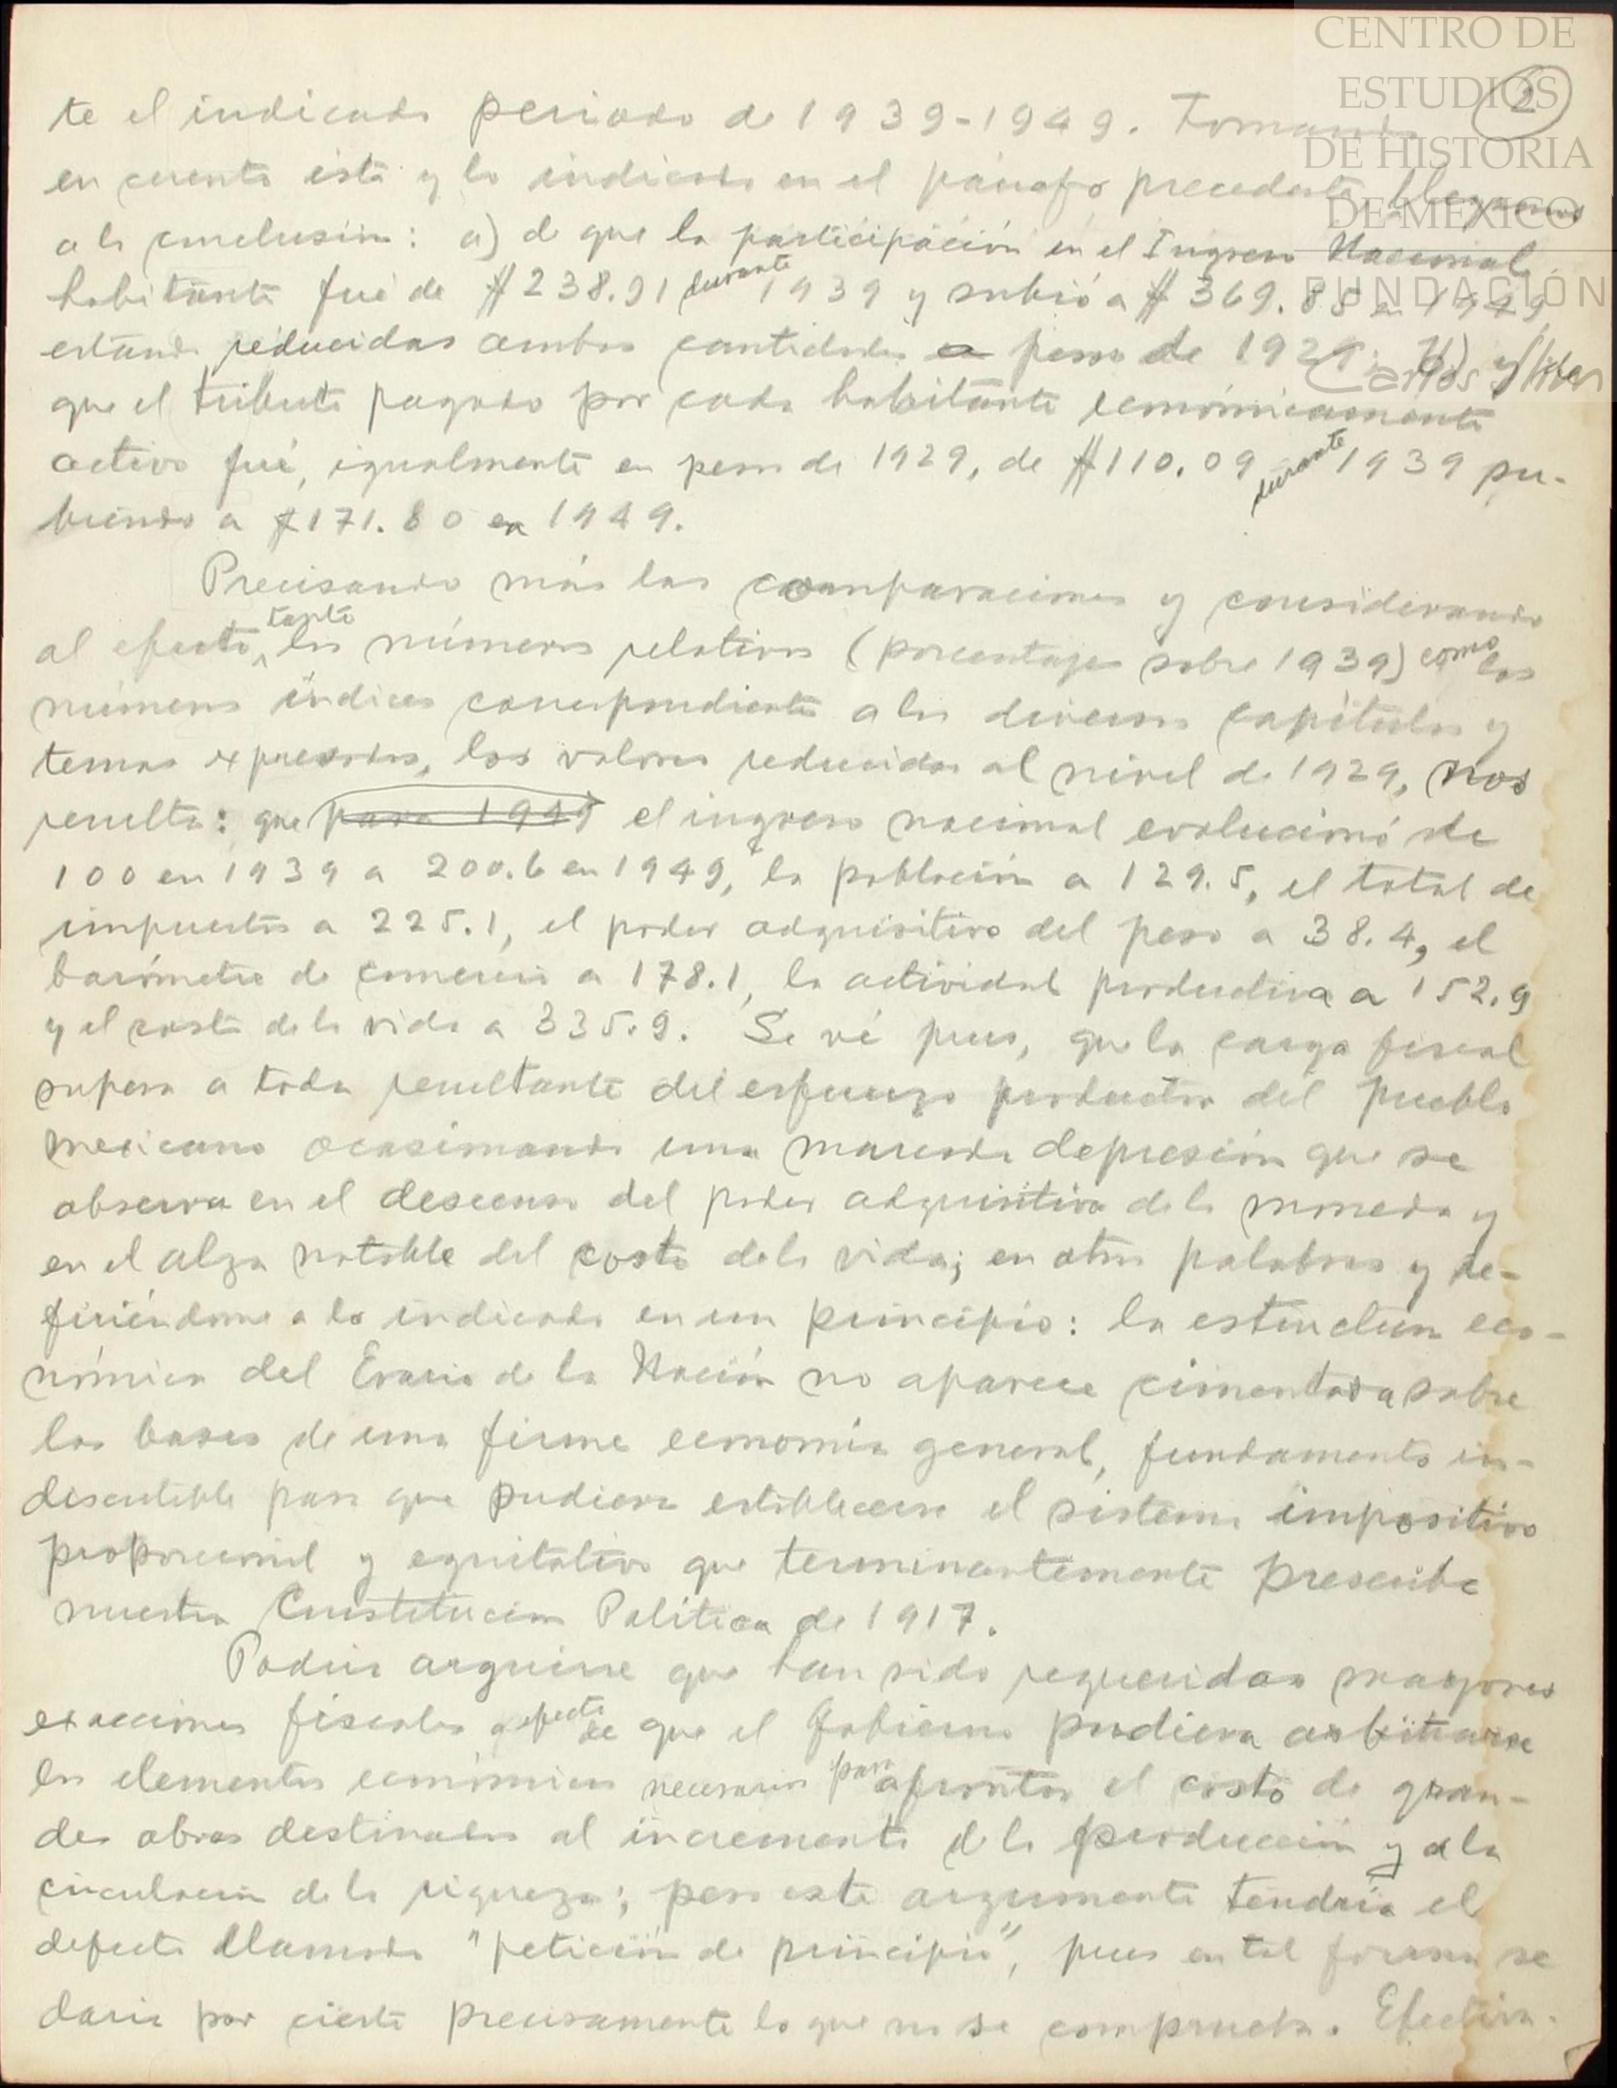 CENTRO DE
ESTUDIOS
DE HISTORIA
DE MEXICO
FUNDACIÓN
Carlos Slim
2
te el indicado periodo de 1939-1949. Tomando
en cuenta ésto y lo indicado en el párrafo precedente, llegamos
a la conclusión: a) de que la participación en el Ingreso Nacional
habitante fué de $238.91 durante 1939 y subió a $369.85 en 1949
estando reducidas ambas cantidades a pesos de 1929; b) y
que el tributo pagado por cada habitante económicamente
activo fué, igualmente en pesos de 1929, de $110.09 durante 1939 su-
biendo a $171.80 en 1949.
Precisando más las comparaciones y considerando
al efecto, tanto los números relativos (porcentajes sobre 1939) como los
números índices correspondientes a los diversos capítulos y
temas expresados, los valores reducidos al nivel de 1929, nos
resulta: que para 1949 el ingreso nacional evolucionó de
100 en 1939 a 200.6 en 1949, la población a 129.5, el total de
impuestos a 225.1, el poder adquisitivo del peso a 38.4, el
barómetro de comercio a 178.1, la actividad productiva a 152.9
y el costo de la vida a 335.9. Se vé pues, que la carga fiscal
supera a toda resultante del esfuerzo productor del pueblo
mexicano ocasionando una marcada depresión que se
observa en el descenso del poder adquisitivo de la moneda y
en el alza notable del costo de la vida; en otras palabras y re-
firiéndome a lo indicado en un principio: la estructura eco-
nómica del Erario de la Nación no aparece cimentada sobre
las bases de una firme economía general, fundamento in-
discutible para que pudiera establecerse el sistema impositivo
proporcional y equitativo que terminantemente prescribe
nuestra Constitución Política de 1917.
Podría argüirse que han sido requeridas mayores
exacciones fiscales a efecto de que el Gobierno pudiera arbitrarse
los elementos económicos necesarios para afrontar el costo de gran-
des obras destinadas al incremento de la producción y a la
circulación de la riqueza; pero este argumento tendría el
defecto llamado "petición de principio", pues en tal forma se
daría por cierto precisamente lo que no se comprueba. Efectiva-